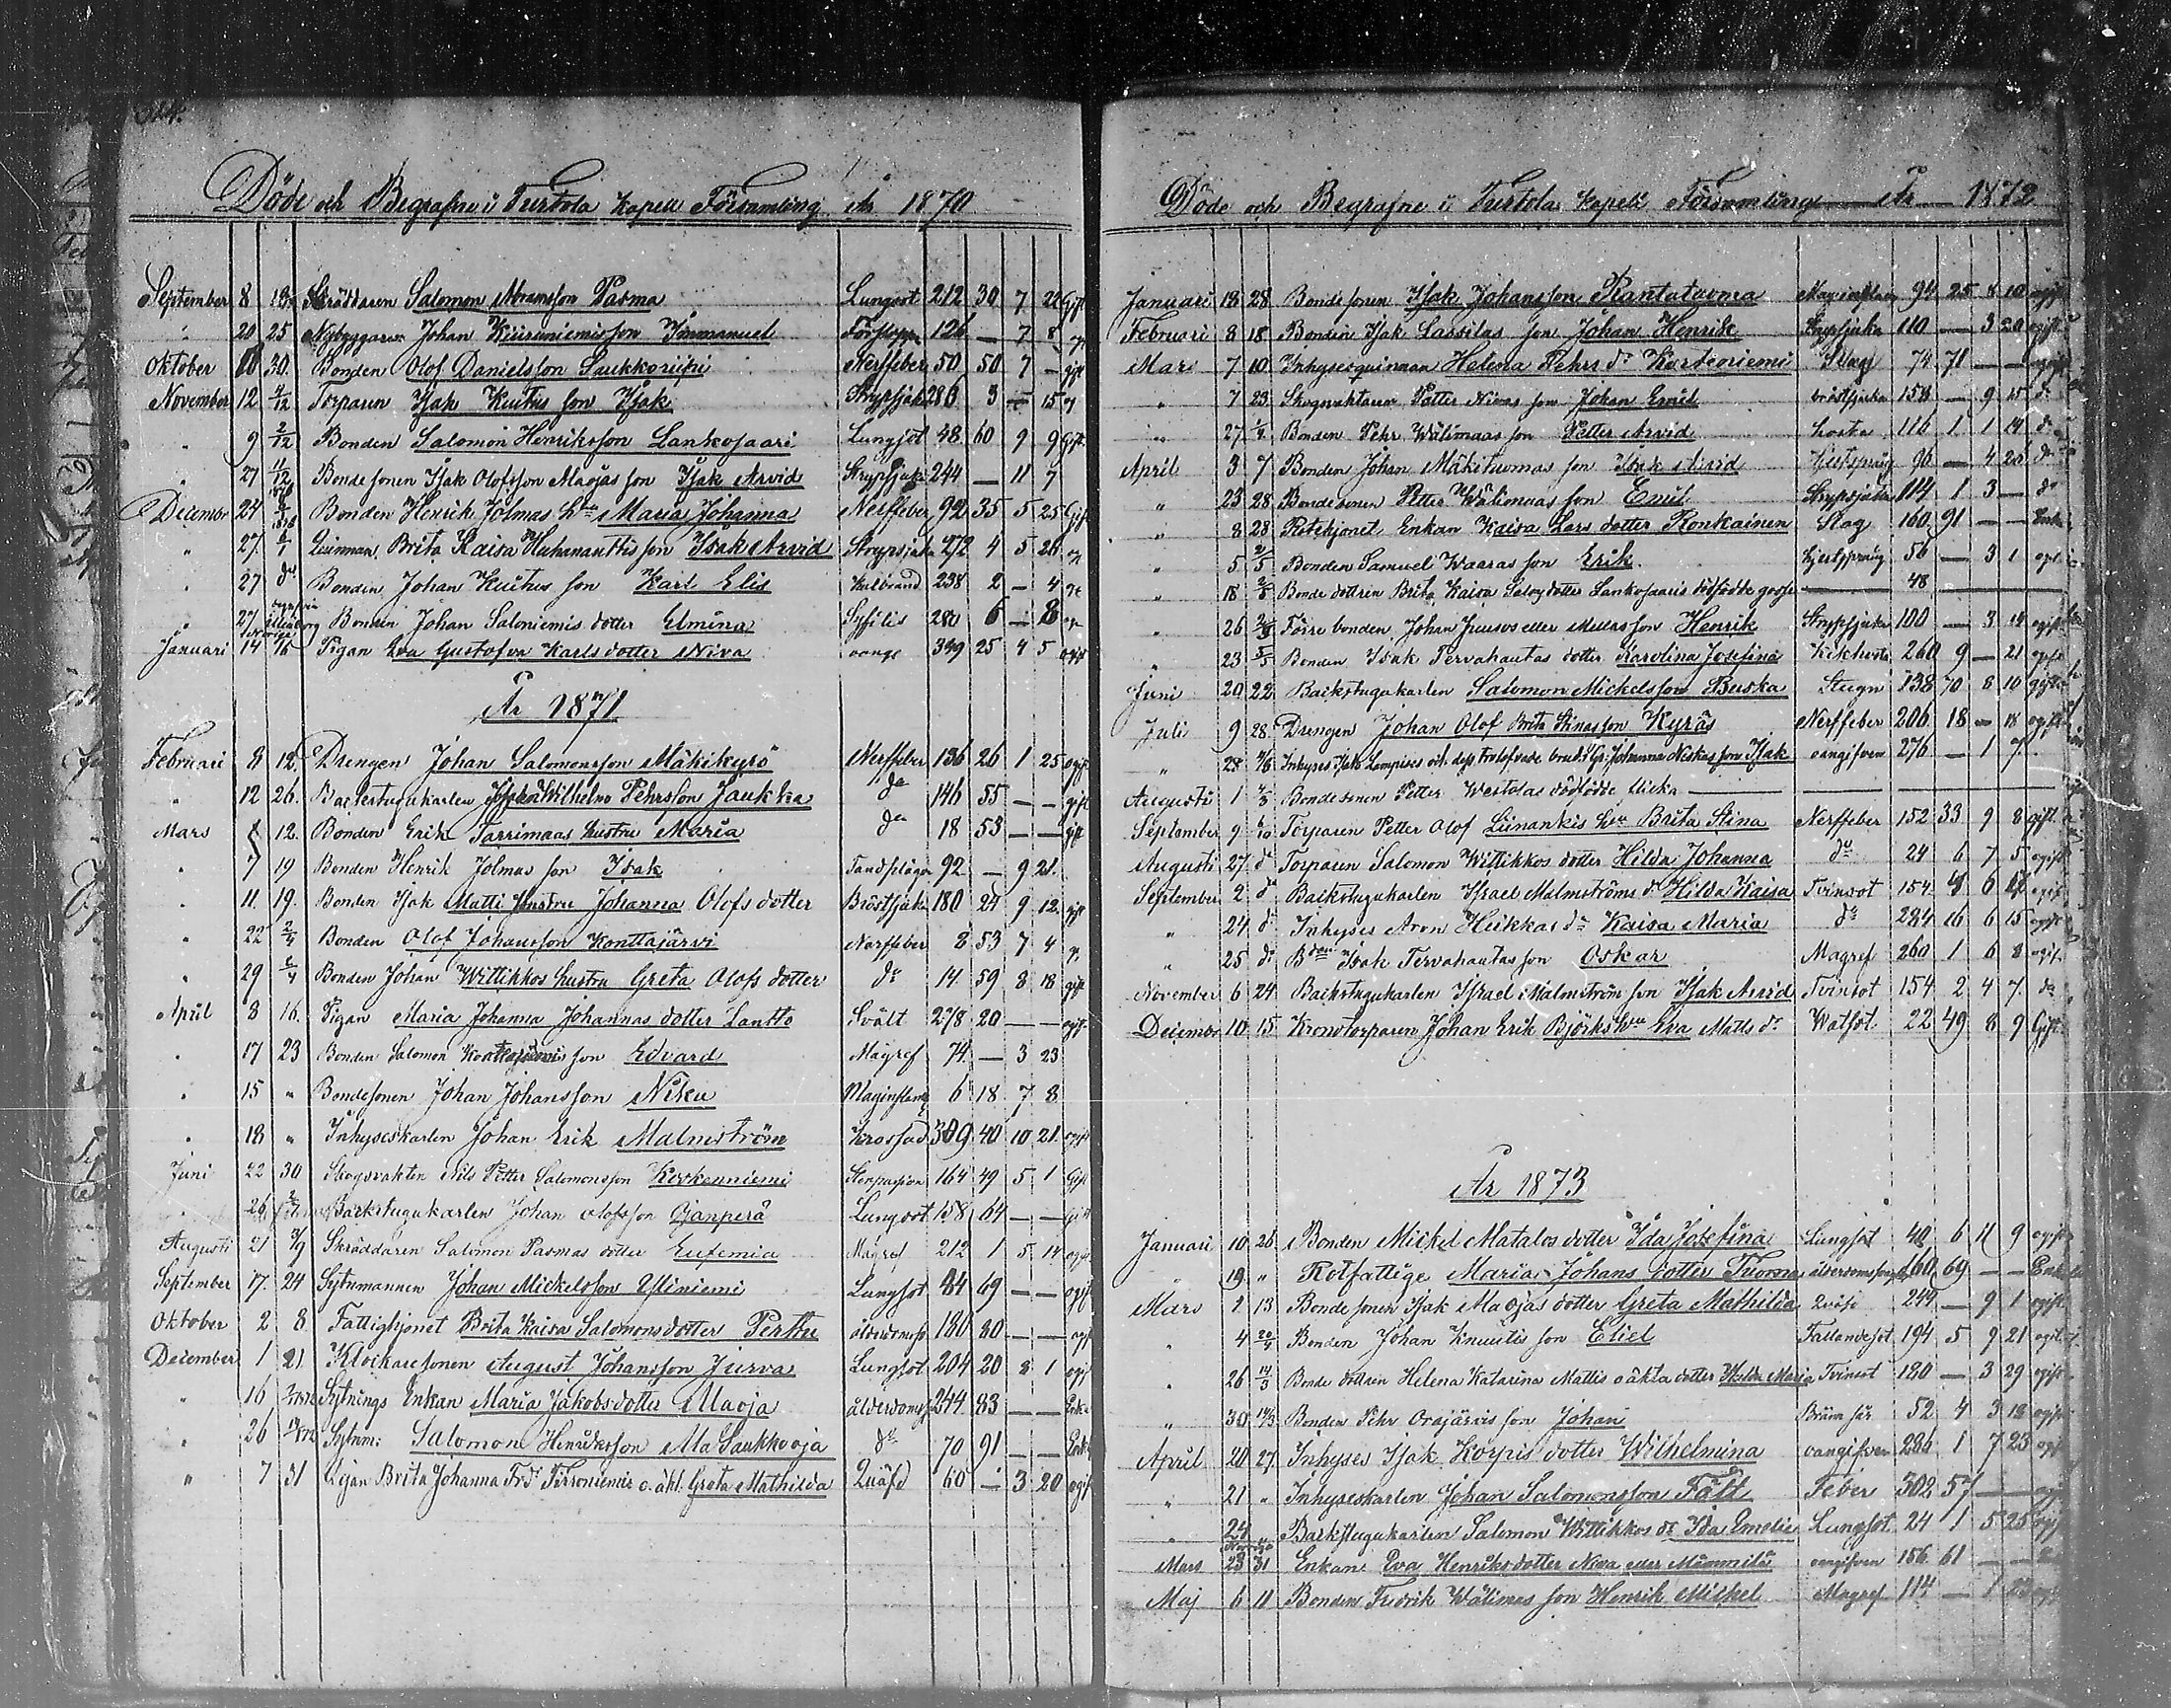 Döde och Begrafne i Turtola Kapell Församling År 1870
September 8 18 Skräddaren Salomon Abramsson Pasma Lungsot 212 30 7 22 Gift
" 20 25 Nybyggaren Johan Kiiruniemis son Immanuel 126 — 7 8
Oktober 10 30. Bonden Olof Danielsson Laukkoriipi Nerffeber 50 50 7 — gift
November 12 4/12 Torparen Isak Kuitus son Isak Strypsjuk 286 3 — 15
" 9 2/12 Bonden Salomon Henriksson Lankosaari Lungsot 48 60 9 9 Gift
" 27 4/12 Bondesonen Isak Olofsson Maojas son Isak Arvid Strypsjuka 244 — 11 7
December 24 Bonden Henrik Jolmas Hu Maria Johanna Nerffeber 92 35 5 25 Gift
" 27. 6/1 Qvinnan Brita Kaisa Huhananttis son Isak Arvid Strypsjuka 272 4 5 26
" 27 do Bonden Johan Kuitus son Karl Elis Kallbrand 238 2 — 4
" 27 Bonden Johan Saloniemis dotter Elmina Syfilis 280 6 — 8
Januari 14 Pigan Eva Gustafva Karlsdotter Niva oange 399 25 4 5 ogift
År 1871
Februari 8 12 Drengen Johan Salomonsson Mäkikyrö Nerffeber 136 26 1 25 ogift
" 12 26. Backstugukarlen Wilhelm Pehrsson Jaukka do 146 55 — — gift
Mars 1 12. Bonden Erik Sarrimaas hustru Maria do 18 53 — — gift
" 7 19 Bonden Henrik Jolmas son Isak Tandplågor 92 — 9 21.
" 11. 19. Bonden Isak Matti hustru Johanna Olofsdotter Bröstsjuka 180 24 9 12. gift
" 22 2/4 Bonden Olof Johansson Konttajärvi Nerffeber 8 53 7 4 g
" 29 2/4 Bonden Johan Wittikkos hustru Greta Olofs dotter do 14. 59 8 18 gift
April 8 16. Pigan Maria Johanna Johannas dotter Lantto Svält 278 20 — — ogift
" 17 23 Bonden Salomon Konttajärvis son Edvard Mägref 74. — 3 23
" 15 " Bondesonen Johan Johansson Niku Maginflam 6 18 7 8
" 18 " Inhyseskarlen Johan Erik Malmström Krossad 309 40 10 21. ogift
Juni 22 30 Skogsvakten Nils Petter Salomonsson Korkeaniemi Stenpasion 164 49 5 1 Gift
" 26 Backstugukarlen Johan Olofsson Ojanperä Lungsot 158 64 — — Gift
Augusti 21 3/9 Skräddaren Salomon Pasmas dotter Eufemia Mägref 212 1 5 14 ogift
September 17. 24 Sytnmannen Johan Mickelsson Yliniemi Lungsot 84 69 — — ogift
Oktober 2 8 Fattighjonet Brita Kaisa Salomonsdotter Perttu ålderdomsf 180 80 — — ogft
December 1 21. Klockaresonen August Johansson Jurva Lungsot 204 20 8 1 ogift
" 16 Sytnings Enkan Maria Jakobsdotter Maoja ålderdomsf 244 83 — — Enka
" 26 Sytnm: Salomon Henriksson Ala Saukkooja do 70 91 — — Enkl
" 7 31 Pigan Brita Johanna Frd Tirroniemis o. äkt. Greta Mathilda Quäfd 60 — 3 20 ogift
Döde och Begrafne i Turtola Kapell Församling — År — 1872
Januari 18 28 Bondesonen Isak Johansson Rantatuoma Maginflam 94 25 8 10 ogift
Februari 8 18 Bonden Isak Lassilas son Johan Henrik Strypsjuka 110 — 3 20 ogift
Mars 7 10 Inhysesquinnan Helena Pehrs dr Korteniemi Slag 74 71 — — ogift
" 7 23 Skogsvaktaren Petter Nivas son Johan Emil bröstsjuka 158 — 9 15 do
" 27 1/4 Bonden Pehr Wälimaas son Petter Arvid hosta 116 1 1 14 do
April 3 7 Bonden Johan Mäkituomas son Isak Arvid hjertsprång 96 — 4 20 do
" 23 28 Bondesonen Petter Wälimaas son Emil Strypsjuka 114 1 3 — do
" 8 28 Rotehjonet Enkan Kaisa Lars dotter Ronkainen Slag 160 91 — — Enka
" 5 2/5 Bonden Samuel Waaras son Erik. hjertsprång 56 — 3 1 ogift
" 18 2/5 Bonde dottren Brita Kaisa Salos dotter Lankosaaris dödfödde gosse — 48 —
" 26 Förre bonden Johan Juusos eller Mellas son Henrik Strypsjuka 100 — 3 14 ogift
" 23 5/5 Bonden Isak Tervahautas dotter Karolina Josefina Kikhosta 260 9 — 21 ogift
Juni 20 22 Backstugukarlen Salomon Mickelsson Buska Stygn 138 70 8 10 gift
Juli 9 28 Drengen Johan Olof Brita Stinasson Kyrös Nerffeber 206 18 — 18 ogift
" 28 Inhyses Isak Lampises och dess trolofvade brud Gr. Johanna Niskas son Isak oangifven 276 — 1 7
Augusti 1 Bondesonen Petter Westolas dödfödde flicka — — —
September 9 6/10 Torparen Petter Olof Liinankis Hu Brita Stina Nerffeber 152 33 9 8 gift
Augusti 27 do Torparen Salomon Wittikkos dotter Hilda Johanna do 24 6 7 5 ogift
September 2 do Backstugukarlen Israel Malmströms d. Hilda Kaisa Tvinsot 154 4 6 17 ogift
" 24 do Inhyses Aron Heikkas dr Kaisa Maria do 284 16 6 15 ogift
" 25 do Bden Isak Tervahautas son Oskar Magref 260 1 6 8 ogift
November 6 24 Backstugukarlen Israel Malmström son Isak Arvid Tvinsot 154 2 4 7 do
December 10 15 Kronotorparen Johan Erik Björks Hu Eva Matts dr Watsot. 22 49 8 9 Gift
År 1873
Januari 10 26 Bonden Mickel Matalas dotter Ida Josefina Lungsot 40 6 11 9 ogift
" 19 " Rotfattige Maria Johans dotter Tuoma 160 69 — — Enka
Mars 2 13 Bondesonen Isak Maojas dotter Greta Mathilda Quäfd 244 — 9 1 ogift
" 4 20/4 Bonden Johan Knuutis son Eliel Fallandesot 194 5 9 21 ogift
" 26 14/3 Bonde dottren Helena Katarina Mattis oäkta dotter Hulda Maria Tvinsot 180 — 3 29 ogift
" 30 14/3 Bonden Pehr Orajärvis son Johan Bränn sår 52 4 3 18 ogift
April 20 27 Inhyses Isak Korpis dotter Wilhelmina oangifven 286 1 7 23 ogift
" 21 " Inhyseskarlen Johan Salomonsson Fält Feber 302 57 — — ogift
" 24 " Backstugukarlen Salomon Wittikkos dr Ida Emelie Lungsot 24 1 5 25 ogift
Mars 23 31 Enkan Eva Henriksdotter Niva eller Männikö oangifven 156 61 — —
Maj 6 11 Bonden Fredrik Wälimas son Henrik Mickel Magref 114 — 1 23